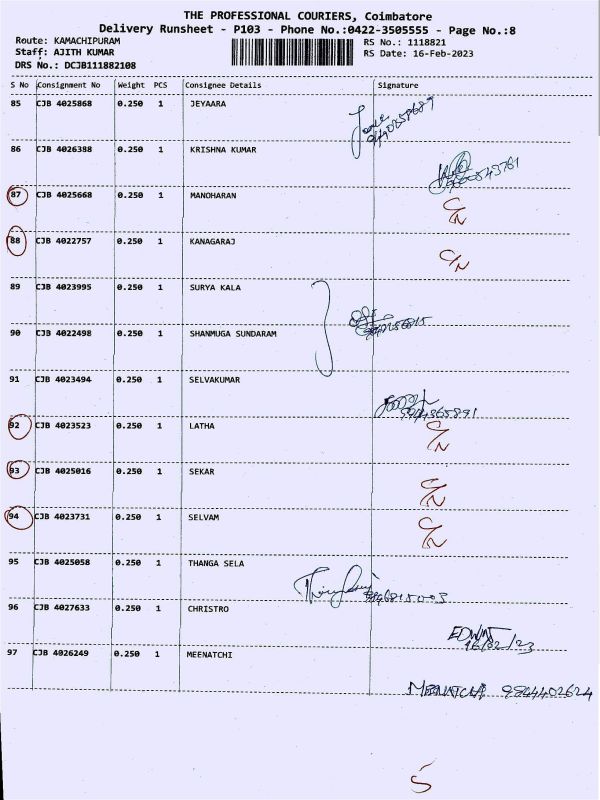 THE PROFESSIONAL COURIERS, Coimbatore
Delivery Runsheet - P103 - Phone No.:0422-3505555 - Page No.:8
Route: KAMACHIPURAM
RS No.: 1118821
Staff: AJITH KUMAR
RS Date: 16-Feb-2023
DRS No.: DCJB111882108
S No Consignment No Weight PCS Consignee Details Signature
85 CJB 4025868 0.250 1 JEYAARA
86 CJB 4026388 0.250 1 KRISHNA KUMAR
87 CJB 4025668 0.250 1 MANOHARAN C/N
88 CJB 4022757 0.250 1 KANAGARAJ C/N
89 CJB 4023995 0.250 1 SURYA KALA
90 CJB 4022498 0.250 1 SHANMUGA SUNDARAM
91 CJB 4023494 0.250 1 SELVAKUMAR
92 CJB 4023523 0.250 1 LATHA C/N
93 CJB 4025016 0.250 1 SEKAR C/N
94 CJB 4023731 0.250 1 SELVAM C/N
95 CJB 4025058 0.250 1 THANGA SELA
96 CJB 4027633 0.250 1 CHRISTRO
16/02/23
97 CJB 4026249 0.250 1 MEENATCHI
9844402624
5